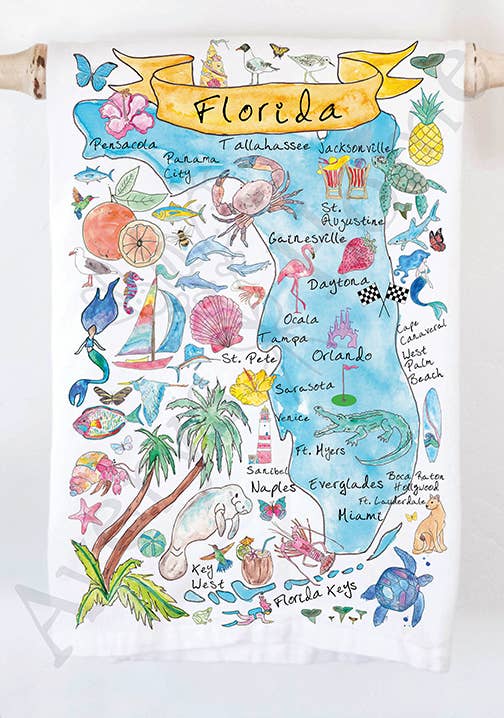 Florida
Pensacola
Tallahassee
Jacksonville
Panama
City
St.
Augustine
Gainesville
Daytona
Ocala
Tampa
Cape
Canaveral
St. Pete
Orlando
West
Palm
Beach
Sarasota
Venice
Ft. Myers
Sanibel
Naples
Everglades
Boca Raton
Hollywood
Ft. Lauderdale
Miami
Key
West
Florida Keys